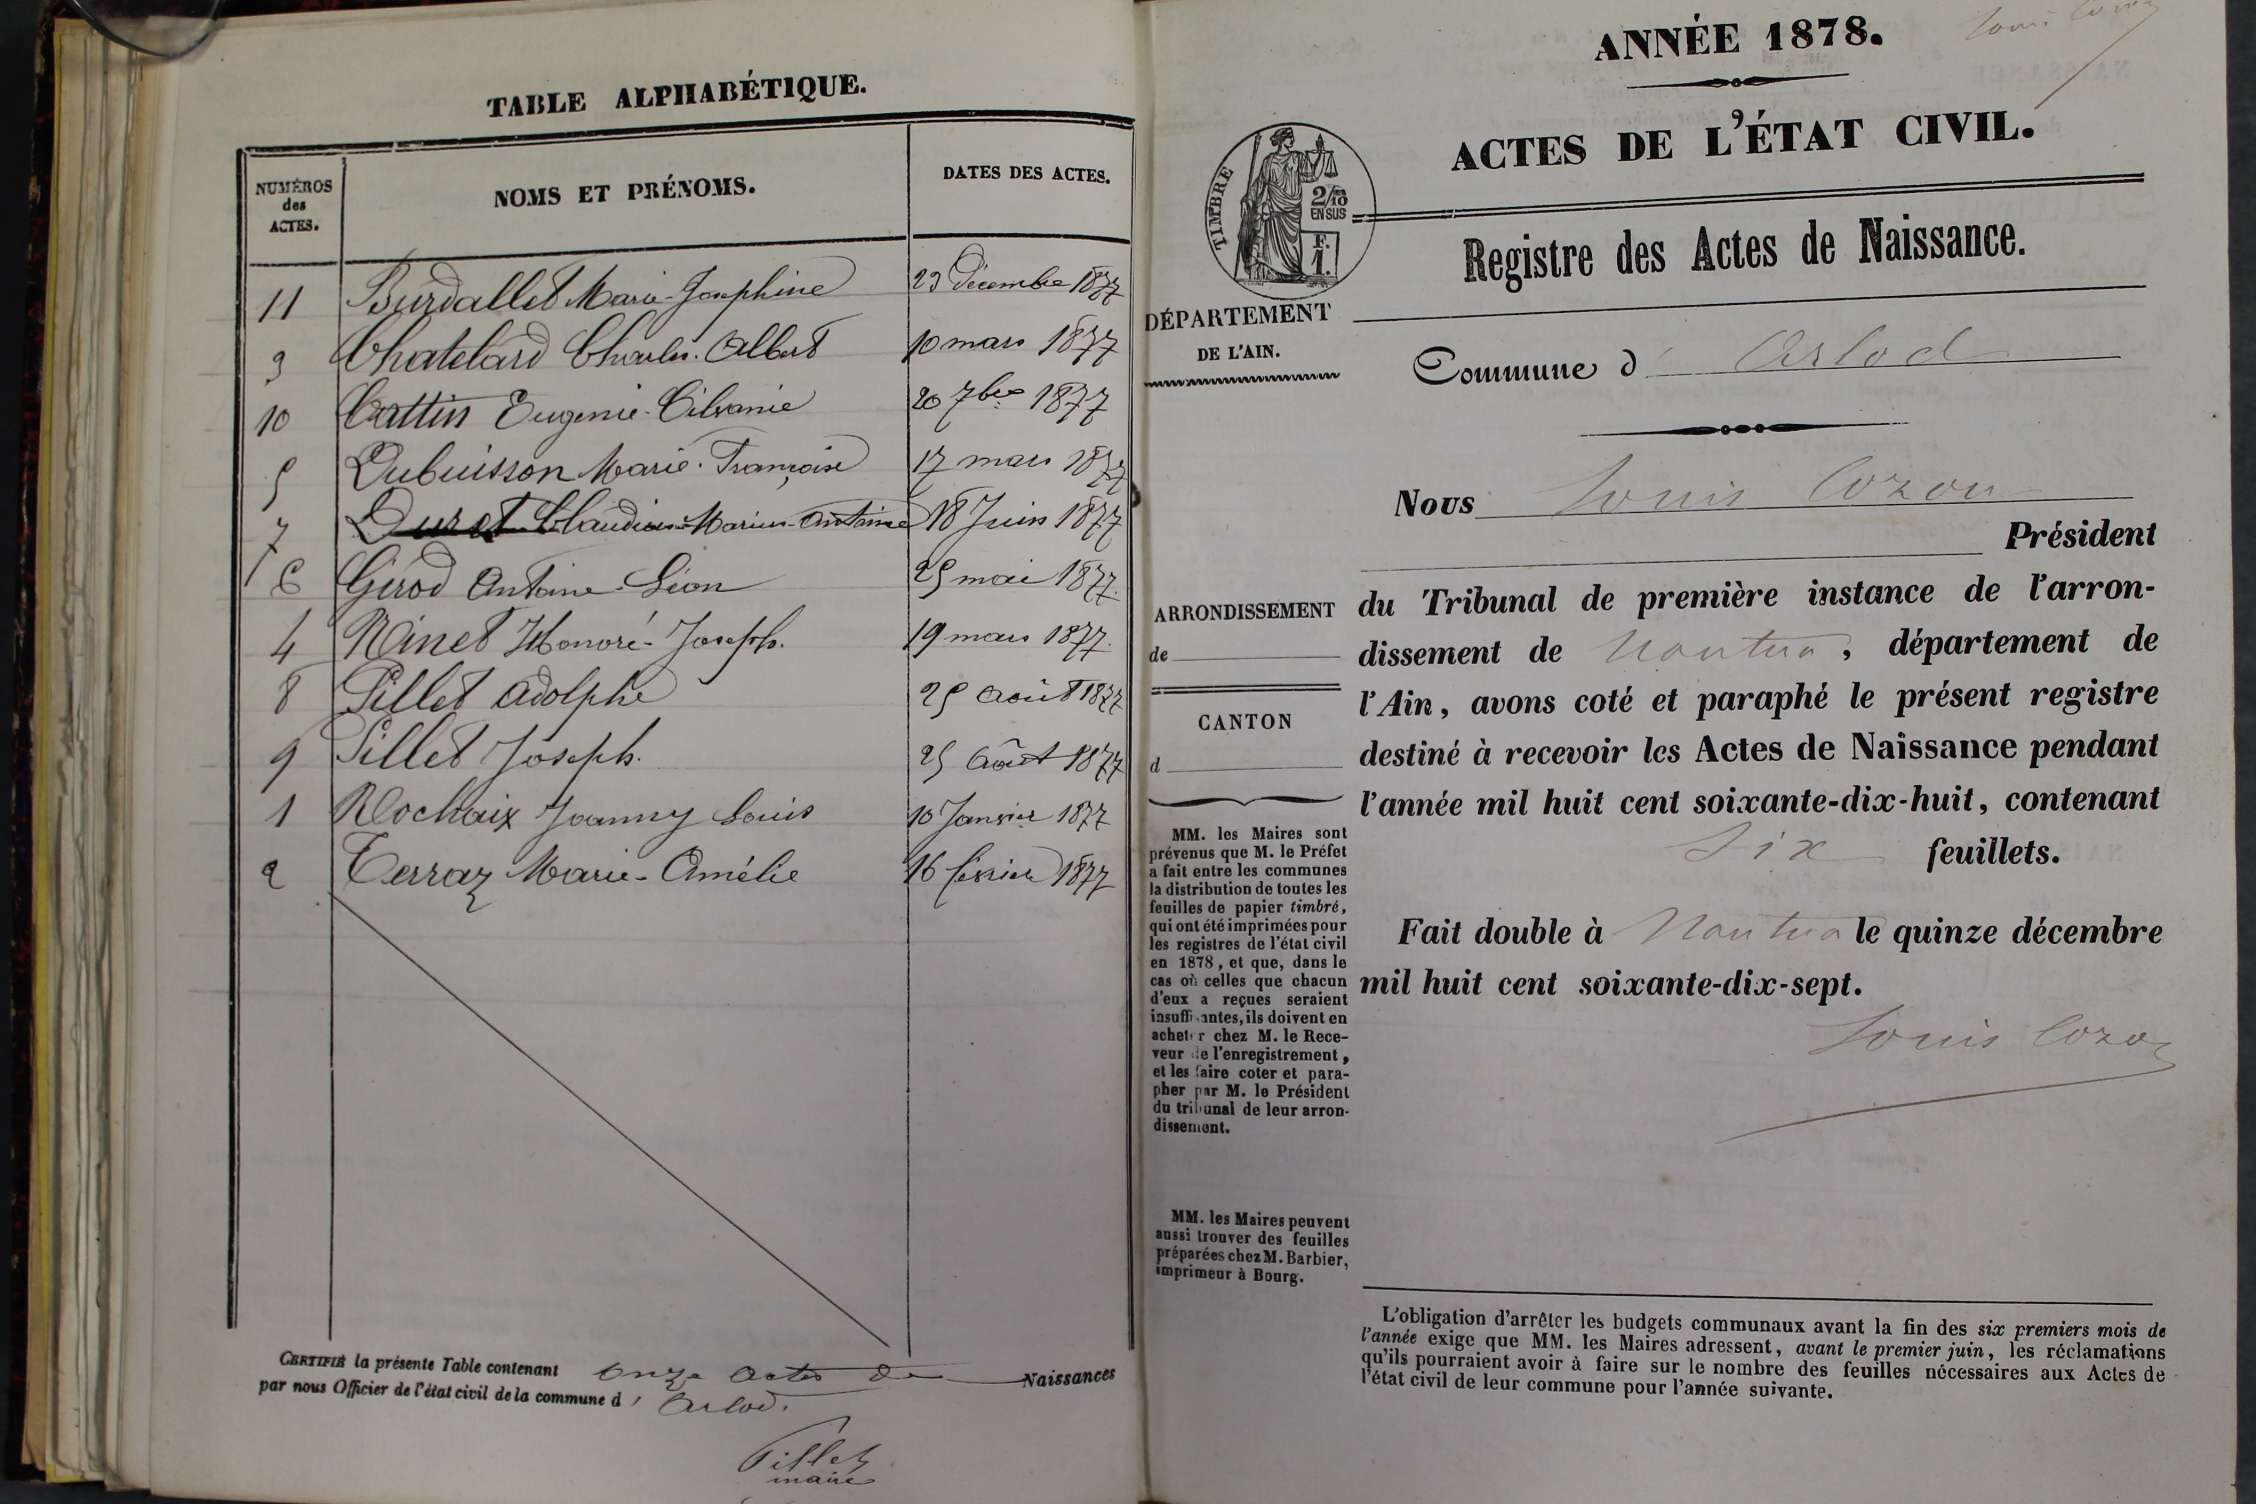 TABLE ALPHABÉTIQUE.
NUMÉROS des ACTES.
NOMS ET PRÉNOMS.
DATES DES ACTES.
11 Burdallet Marie-Josephine 23 Décembre 1877
3 Chatelard Charles-Albert 10 mars 1877
10 Cattin Eugenie-Cilvanie 20 7bre 1877
5 Dubuisson Marie-Françoise 17 mars 1877
7 Duret Claudius-Marius-Antoine 18 Juin 1877
6 Girod Antoine-Léon 25 mai 1877
4 Ninet Honoré-Joseph. 19 mars 1877.
8 Pillet Adolphe 25 Août 1877
9 Pillet Joseph. 25 Août 1877
1 Rochaix Joanny Louis 10 Janvier 1877
2 Terraz Marie-Amélie 16 février 1877
CERTIFIÉ la présente Table contenant onze actes de Naissances
par nous Officier de l'état civil de la commune d' Arlod.
Pillet
maire
Louis Cozon
ANNÉE 1878.
ACTES DE L'ÉTAT CIVIL.
TIMBRE
2/10
EN SUS
F.
1.
Registre des Actes de Naissance.
DÉPARTEMENT
DE L'AIN.
Commune d' Arlod
Nous Louis Cozon
Président
du Tribunal de première instance de l'arron-
dissement de Nantua, département de
l'Ain, avons coté et paraphé le présent registre
destiné à recevoir les Actes de Naissance pendant
l'année mil huit cent soixante-dix-huit, contenant
Six feuillets.
Fait double à Nantua le quinze décembre
mil huit cent soixante-dix-sept.
Louis Cozon
ARRONDISSEMENT
de
CANTON
d
MM. les Maires sont
prévenus que M. le Préfet
a fait entre les communes
la distribution de toutes les
feuilles de papier timbré,
qui ont été imprimées pour
les registres de l'état civil
en 1878, et que, dans le
cas où celles que chacun
d'eux a reçues seraient
insuffisantes, ils doivent en
acheter chez M. le Rece-
veur de l'enregistrement,
et les faire coter et para-
pher par M. le Président
du tribunal de leur arron-
dissement.
MM. les Maires peuvent
aussi trouver des feuilles
préparées chez M. Barbier,
imprimeur à Bourg.
L'obligation d'arrêter les budgets communaux avant la fin des six premiers mois de
l'année exige que MM. les Maires adressent, avant le premier juin, les réclamations
qu'ils pourraient avoir à faire sur le nombre des feuilles nécessaires aux Actes de
l'état civil de leur commune pour l'année suivante.